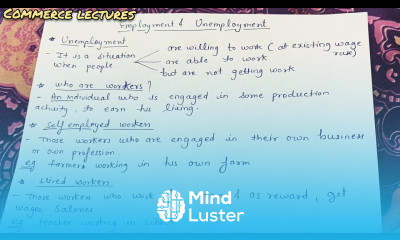 COMMERCE LECTURES
Employment & Unemployment
* Unemployment
- It is a situation when people
are willing to work (at existing wage rate)
are able to work
but are not getting work
* who are workers?
- An individual who is engaged in some production
activity, to earn his living.
* Self employed workers
- Those workers who are engaged in their own business
or own profession.
eg farmers working in his own farm
* Hired workers
- Those workers who work as reward, get
wages, salaries
eg teacher working in
Mind
Luster